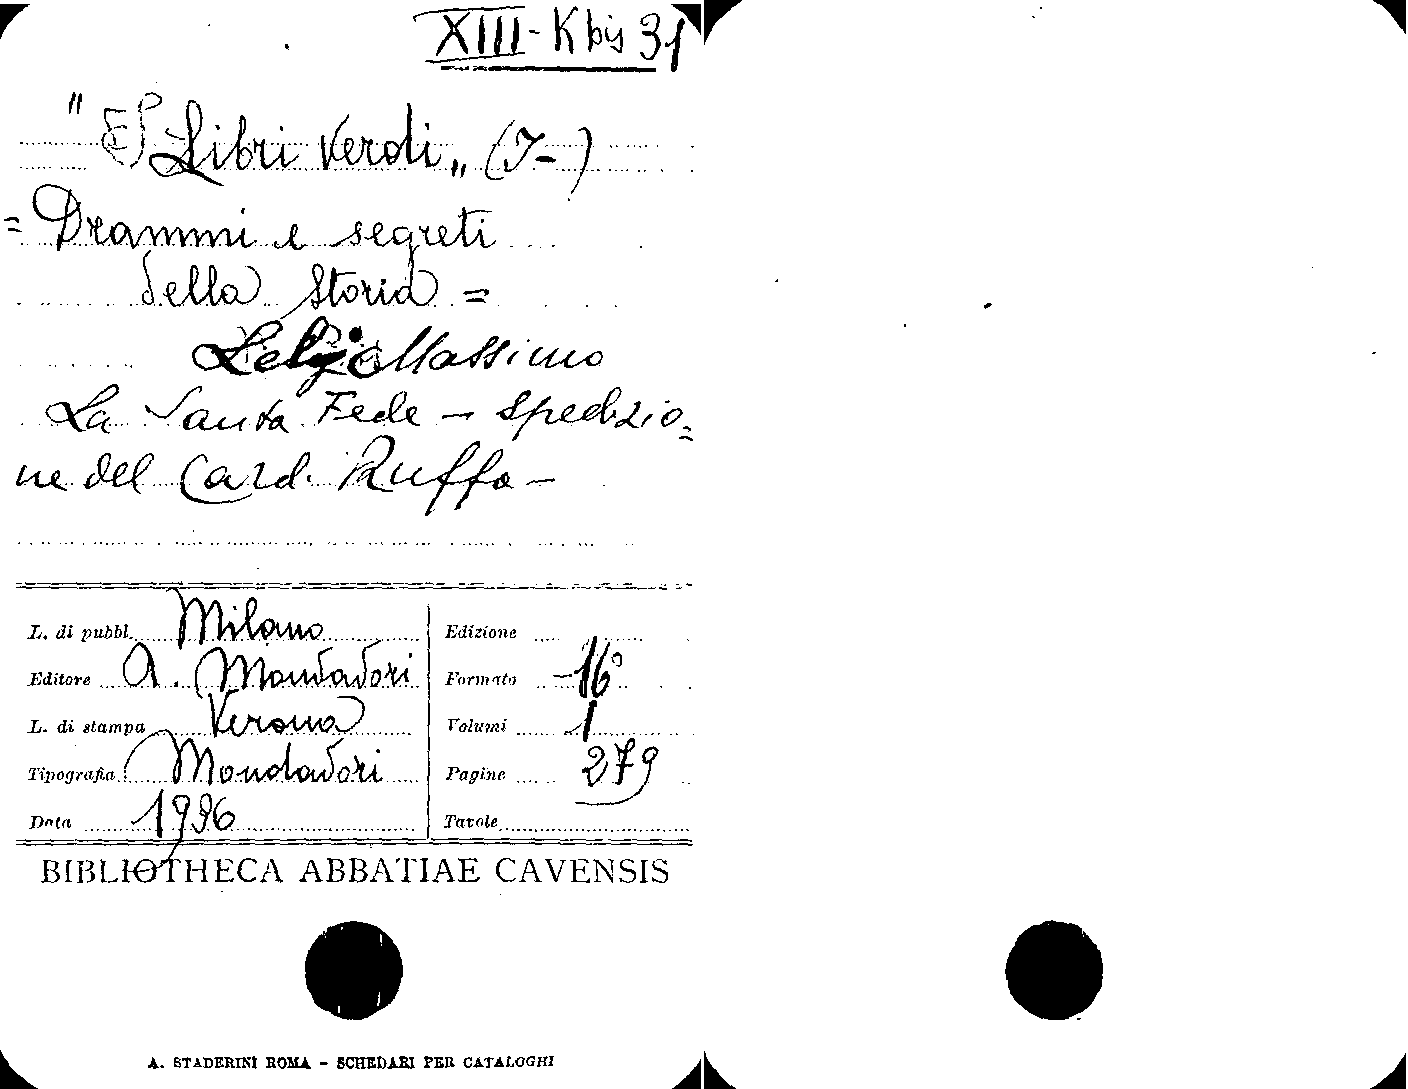 XIII - K bis 31
" I Libri Verdi „ (I-)
= Drammi e segreti
della storia =
Lelj Massimo
La Santa Fede - spedizio=
ne del Card. Ruffo -
L. di pubbl. Milano
Editore A. Mondadori
L. di stampa Verona
Tipografia Mondadori
Data 1936
Edizione
Formato -16°
Volumi 1
Pagine 279
Tavole
BIBLIOTHECA ABBATIAE CAVENSIS
A. STADERINI ROMA - SCHEDARI PER CATALOGHI